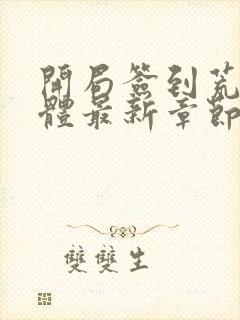 開局簽到荒
體最新章節
雙雙生